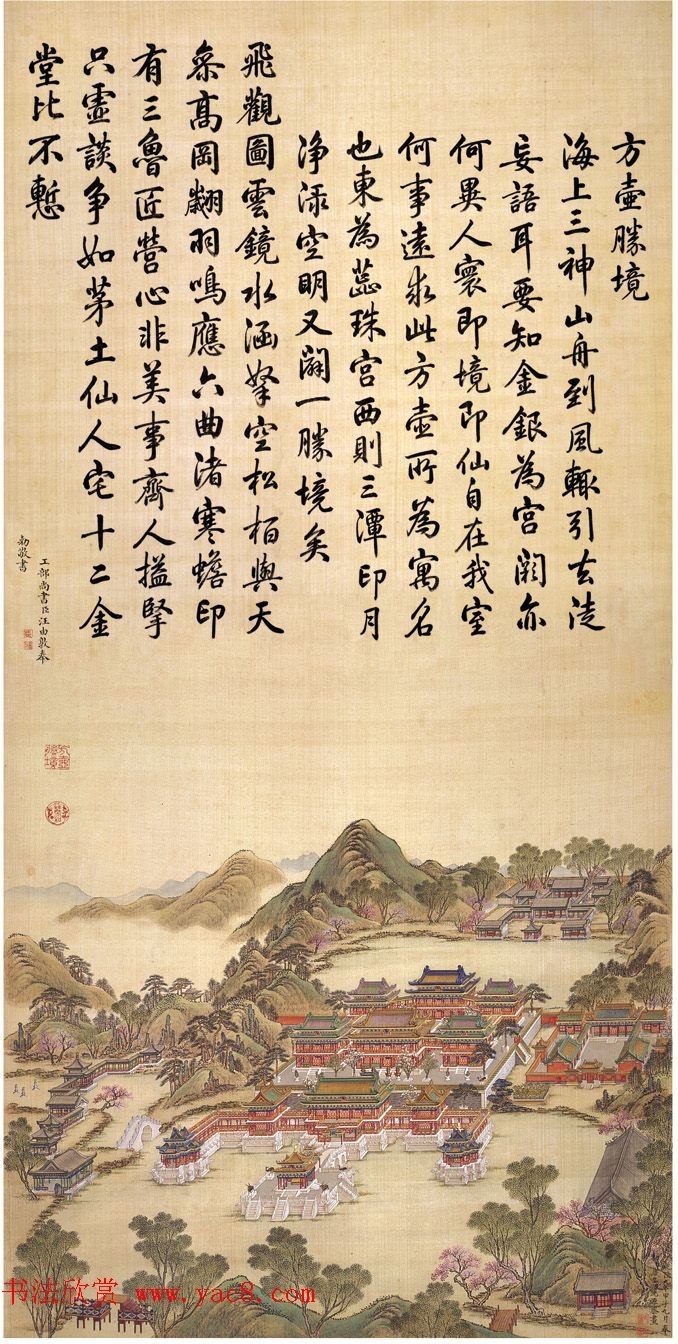 方壺勝境
海上三神山舟到風輒引去徒
妄語耳要知金銀為宮闕亦
何異人寰即境即仙自在我室
何事遠求此方壺所為寓名
也東為蕊珠宮西則三潭印月
淨淥空明又闢一勝境矣
飛觀圖雲鏡水涵拏空松栢與天
叅高岡翽羽鳴應六曲渚寒蟾印
有三魯匠營心非美事齊人搤掔
只靈談爭如茅土仙人宅十二金
堂比不慙
工部尚書臣汪由敦奉
勅敬書
书法欣赏 www.yac8.com